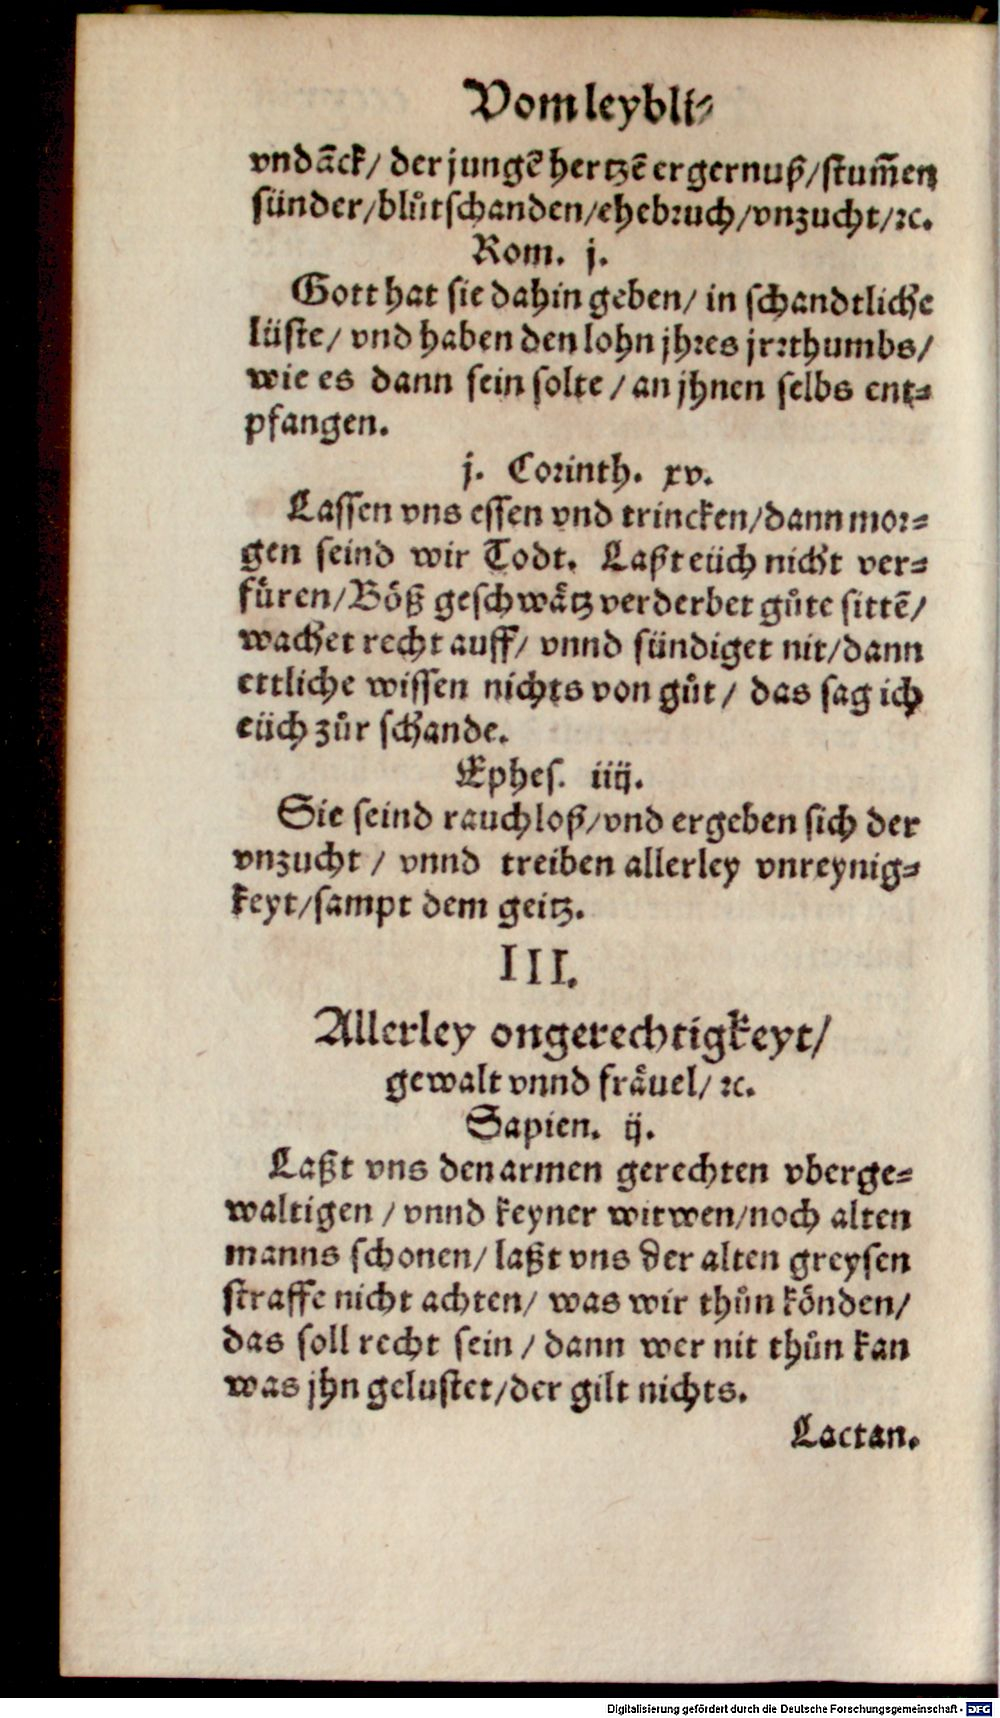 Vom leybli⸗
vndãck/ der jungẽ hertzẽ ergernuß/stum̃en
sünder/blůtschanden/ehebꝛuch/vnzucht/ꝛc.
Rom. j.
Gott hat sie dahin geben/ in schandtliche
lüste/ vnd haben den lohn jhꝛes jrꝛthumbs/
wie es dann sein solte/ an jhnen selbs ent⸗
pfangen.
j. Coꝛinth. xv.
Lassen vns essen vnd trincken/dann moꝛ⸗
gen seind wir Todt. Laßt eüch nicht ver⸗
fuͤren/Boͤß geschwaͤtz verderbet gůte sittẽ/
wachet recht auff/ vnnd sündiget nit/dann
ettliche wissen nichts von gůt/ das sag ich
eüch zůr schande.
Ephes. iiij.
Sie seind rauchloß/vnd ergeben sich der
vnzucht/ vnnd treiben allerley vnreynig⸗
keyt/sampt dem geitz.
III.
Allerley ongerechtigkeyt/
gewalt vnnd fraͤuel/ ꝛc.
Sapien. ij.
Laßt vns den armen gerechten vberge⸗
waltigen/ vnnd keyner witwen/noch alten
manns schonen/ laßt vns der alten greysen
straffe nicht achten/ was wir thůn koͤnden/
das soll recht sein/ dann wer nit thůn kan
was jhn gelustet/der gilt nichts.
Lactan.
Digitalisierung gefördert durch die Deutsche Forschungsgemeinschaft - DFG